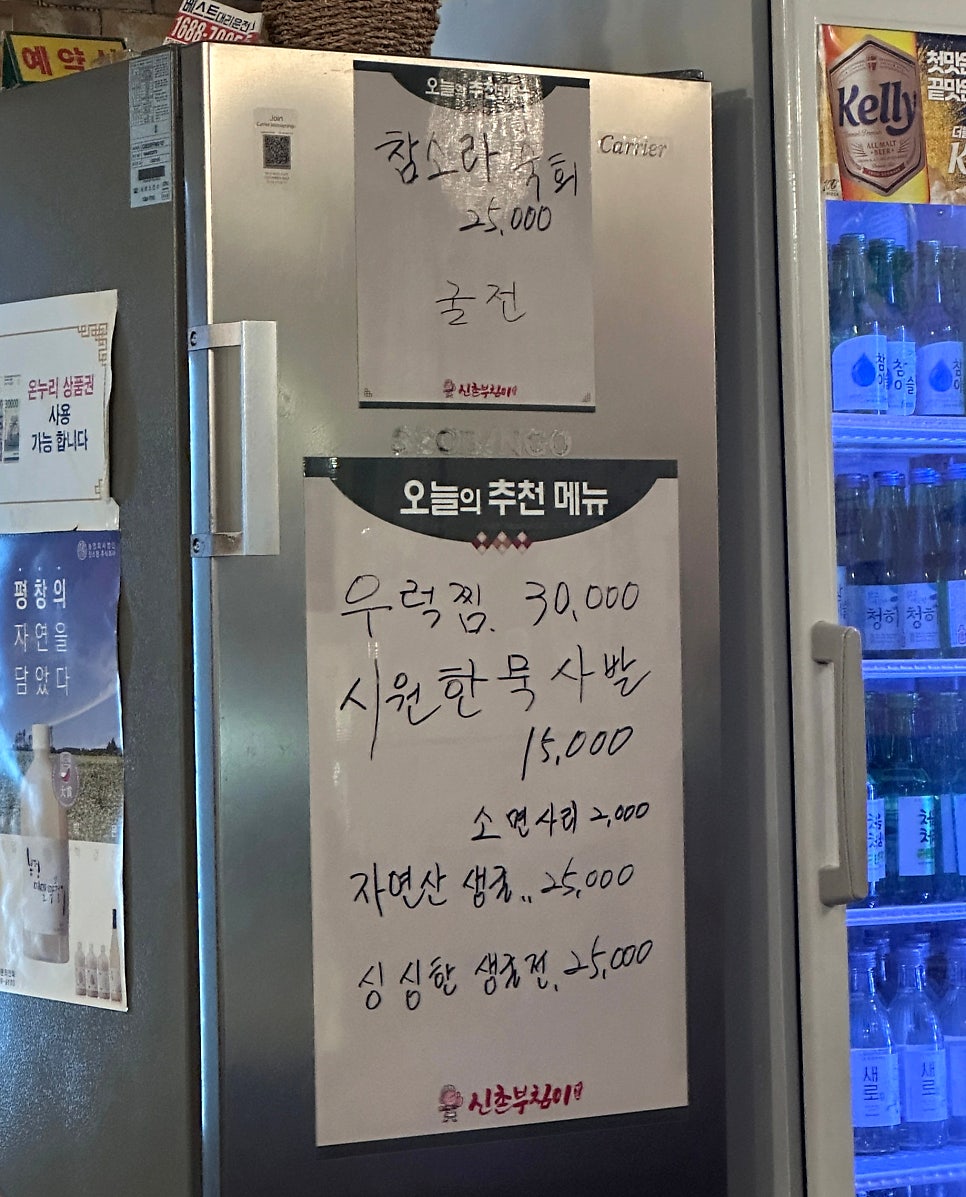 예약
베스트대리운전
1688-7005
Join
오늘의 추천 메뉴
참소라 숙회
25,000
굴전
신촌부침이
Carrier
온누리 상품권
사용
가능 합니다
오늘의 추천 메뉴
우럭찜. 30,000
시원한 묵사발
15,000
소면사리 2,000
자연산 생굴.. 25,000
싱싱한 생굴전. 25,000
신촌부침이
평창의
자연을
담았다
Kelly
ALL MALT
BEER
첫맛은
끝맛은
참이슬
참이슬
참이슬
청하
청하
새로
새로